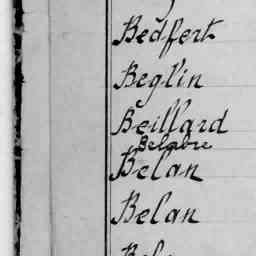 Bedfert
Beglin
Beillard
Belabre
Belan
Belan